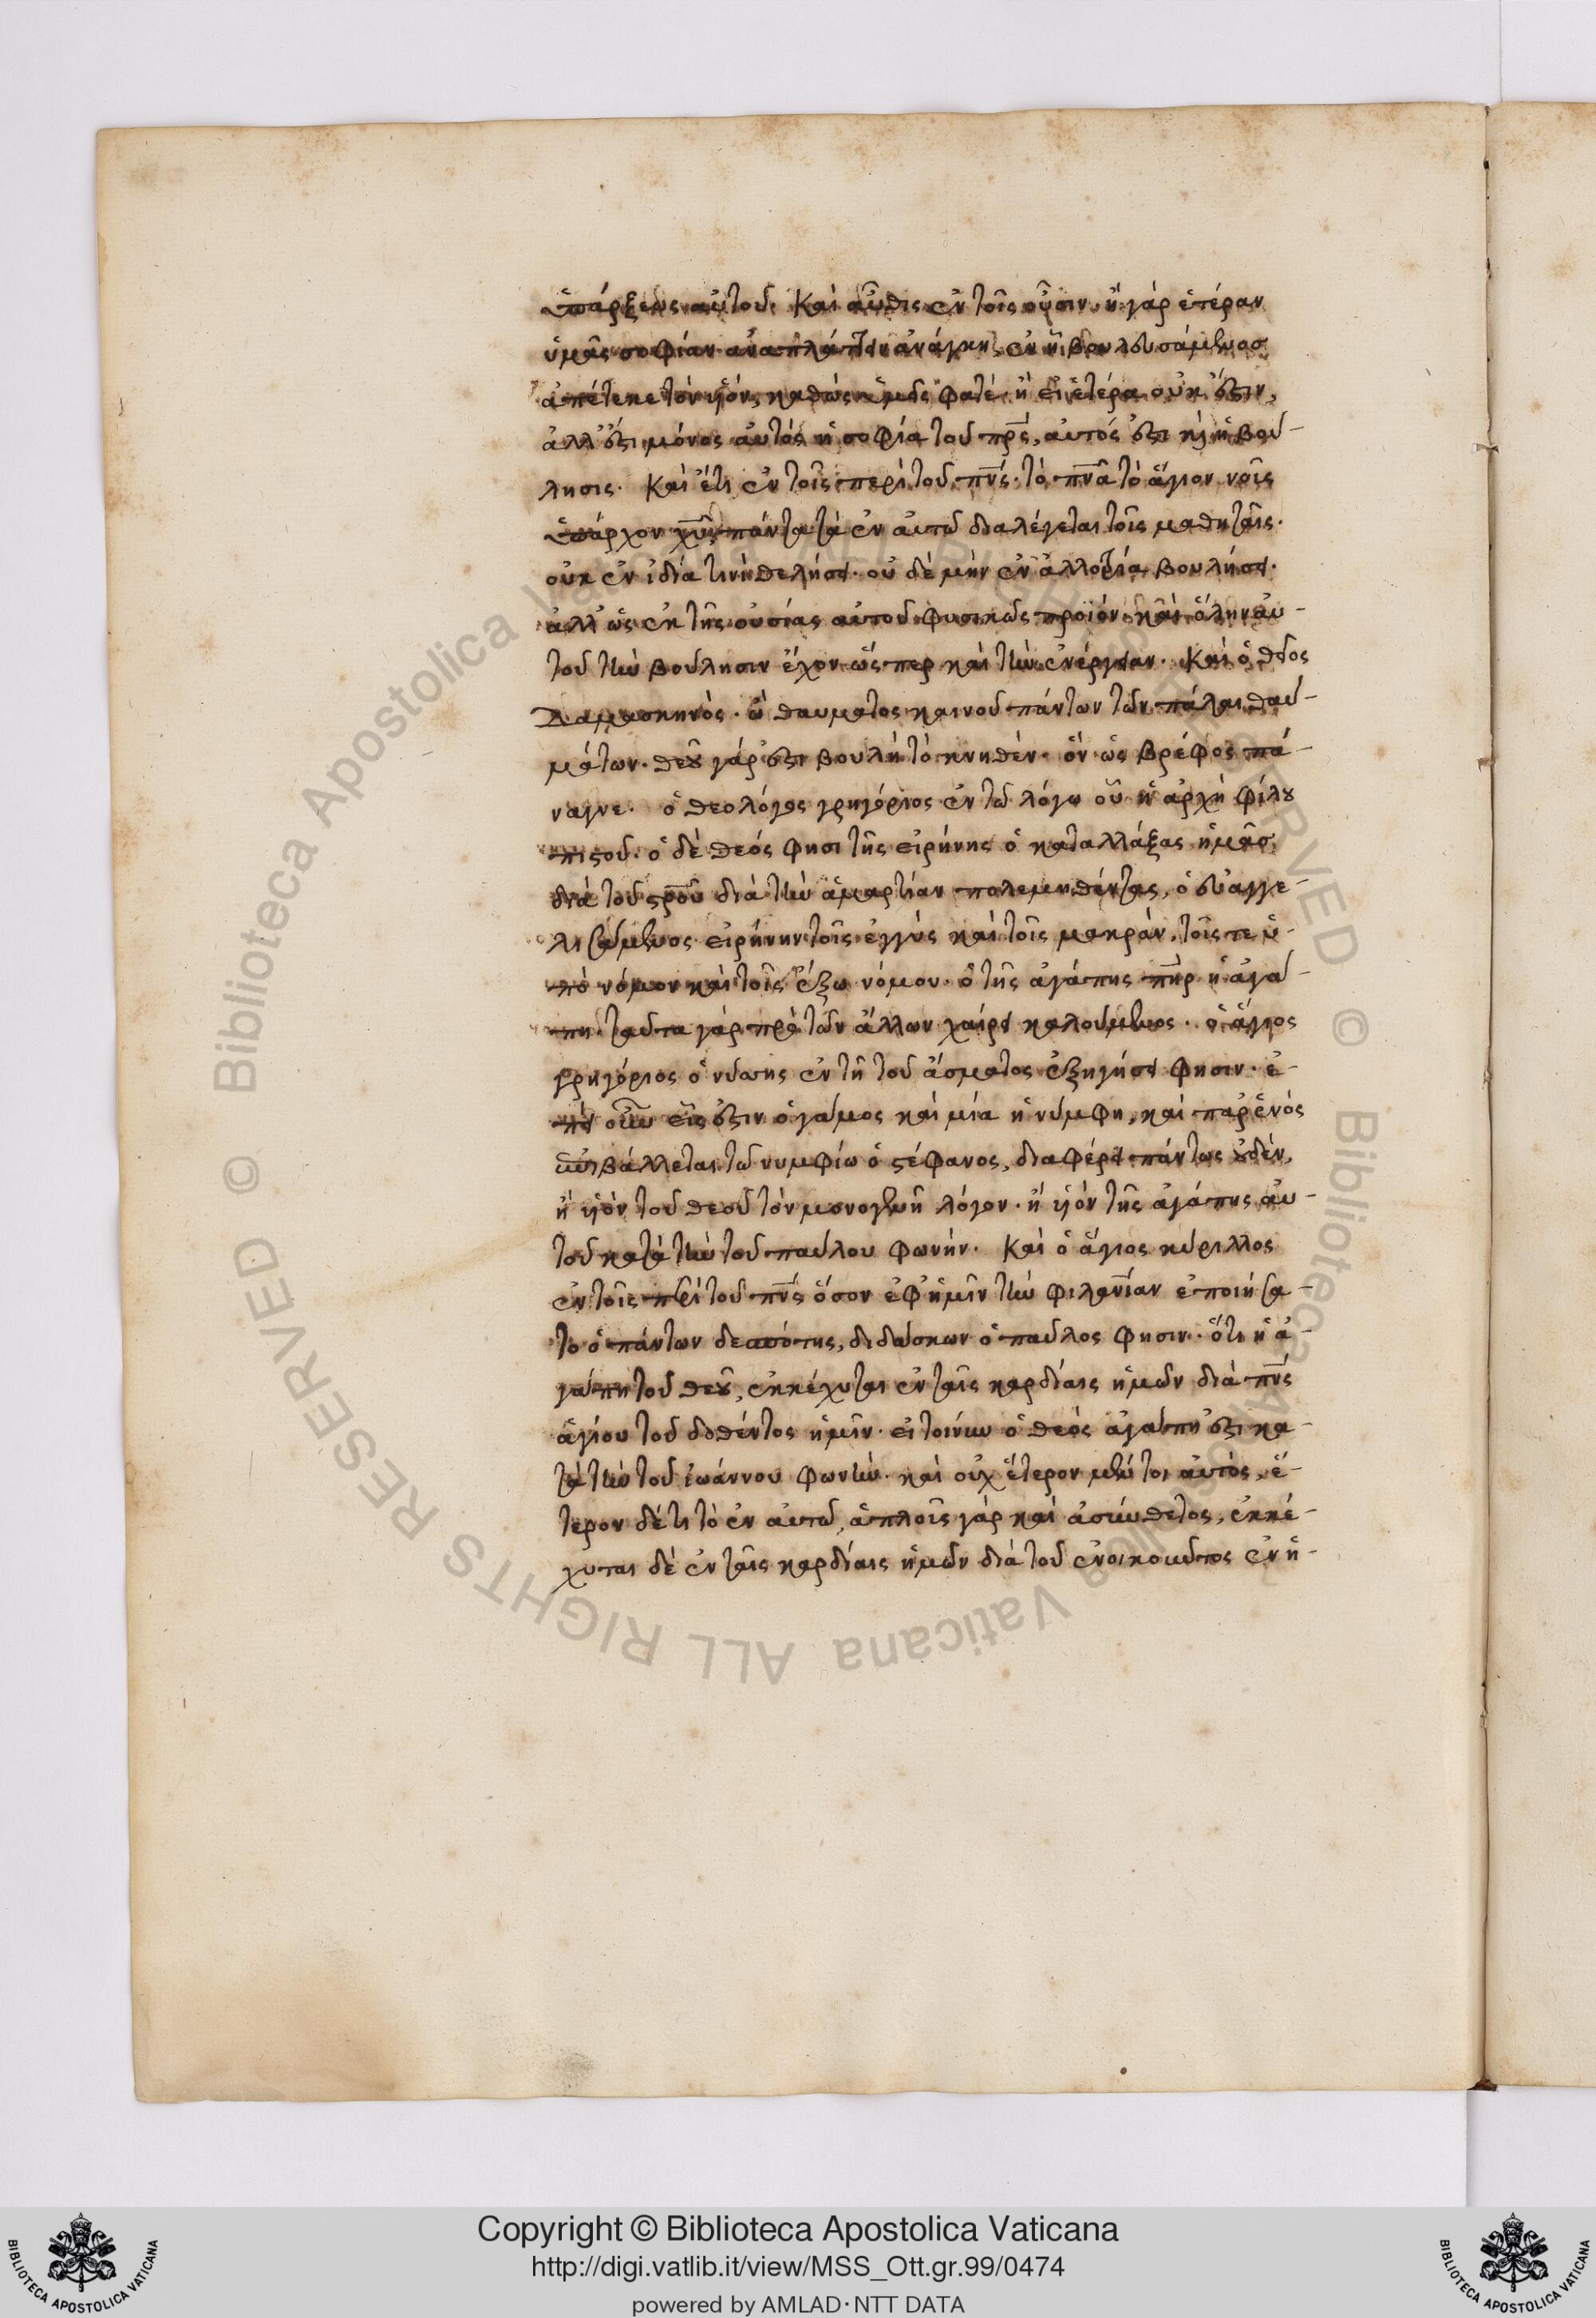 ὑπάρξεως αὐτοῦ. Καὶ αὖθις ἐν τοῖς οὖσιν. ἢ γὰρ ἑτέραν
ὑμᾶς σοφίαν ἀναπλάττειν ἀνάγκη, ἐν ᾗ βουλευσάμενος
ἀπέτεκε τὸν υἱόν, καθὼς ὑμεῖς φατέ. ἢ εἰ ἑτέρα οὐκ ἔστιν,
ἀλλ' ἔστι μόνος αὐτὸς ἡ σοφία τοῦ πρς, αὐτός ἐστι καὶ ἡ βού-
λησις. Καὶ ἔτι ἐν τοῖς περὶ τοῦ πνς. τὸ πνα τὸ ἅγιον νοῦς
ὑπάρχον χυ, πάντα τὰ ἐν αὐτῷ διαλέγεται τοῖς μαθηταῖς.
οὐκ ἐν ἰδίᾳ τινὶ θελήσει. οὐδὲ μὴν ἐν ἀλλοτρίᾳ βουλήσει.
ἀλλ' ὡς ἐκ τῆς οὐσίας αὐτοῦ φυσικῶς προϊόν. καὶ ὅλην αὐ-
τοῦ τὴν βούλησιν ἔχον ὥσπερ καὶ τὴν ἐνέργειαν. Καὶ ὁ θεῖος
Δαμασκηνός. ὢ θαύματος καινοῦ πάντων τῶν πάλαι θαυ-
μάτων. θεοῦ γάρ ἐστι βουλὴ τὸ κυηθέν. ὃν ὡς βρέφος πά-
ναγνε. ὁ θεολόγος γρηγόριος ἐν τῷ λόγῳ οὗ ἡ ἀρχὴ φίλου
πιστοῦ. ὁ δὲ θεός φησι τῆς εἰρήνης ὁ καταλλάξας ἡμᾶς
διὰ τοῦ στροῦ διὰ τὴν ἁμαρτίαν πολεμηθέντας, ὁ εὐαγγε-
λισάμενος εἰρήνην τοῖς ἐγγὺς καὶ τοῖς μακράν, τοῖς τε ὑ-
πὸ νόμον καὶ τοῖς ἔξω νόμου. ὁ τῆς ἀγάπης πηρ ἡ ἀγά-
πη. ταῦτα γὰρ πρὸ τῶν ἄλλων χαίρει καλούμενος. ὁ ἅγιος
γρηγόριος ὁ νύσσης ἐν τῇ τοῦ ἄσματος ἐξηγήσει φησιν. ἐ-
πεὶ οὖν εἷς ἐστιν ὁ γάμος καὶ μία ἡ νύμφη, καὶ παρ' ἑνὸς
ἐπιβάλλεται τῷ νυμφίῳ ὁ στέφανος, διαφέρει πάντως οὐδέν,
ἢ υἱὸν τοῦ θεοῦ τὸν μονογενῆ λόγον. ἢ υἱὸν τῆς ἀγάπης αὐ-
τοῦ κατὰ τὴν τοῦ παύλου φωνήν. Καὶ ὁ ἅγιος κύριλλος
ἐν τοῖς περὶ τοῦ πνς ὅσον ἐφ' ἡμῖν τὴν φιλανίαν ἐποιήσα-
το ὁ πάντων δεσπότης, διδάσκων ὁ παῦλος φησιν. ὅτι ἡ ἀ-
γάπη τοῦ θεοῦ, ἐκκέχυται ἐν ταῖς καρδίαις ἡμῶν διὰ πνς
ἁγίου τοῦ δοθέντος ἡμῖν. εἰ τοίνυν ὁ θεὸς ἀγάπη ἐστι κα-
τὰ τὴν τοῦ ἰωάννου φωνήν. καὶ οὐχ ἕτερον μέν τοι αὐτός, ἕ-
τερον δέ τι τὸ ἐν αὐτῷ, ἁπλοῦς γὰρ καὶ ἀσύνθετος, ἐκκέ-
χυται δὲ ἐν ταῖς καρδίαις ἡμῶν διὰ τοῦ ἐνοικοῦντος ἐν ἡ-
© Biblioteca Apostolica Vaticana ALL RIGHTS RESERVED © Biblioteca Apostolica Vaticana ALL RIGHTS RESERVED
Copyright © Biblioteca Apostolica Vaticana
http://digi.vatlib.it/view/MSS_Ott.gr.99/0474
powered by AMLAD·NTT DATA
BIBLIOTECA APOSTOLICA VATICANA
BIBLIOTECA APOSTOLICA VATICANA